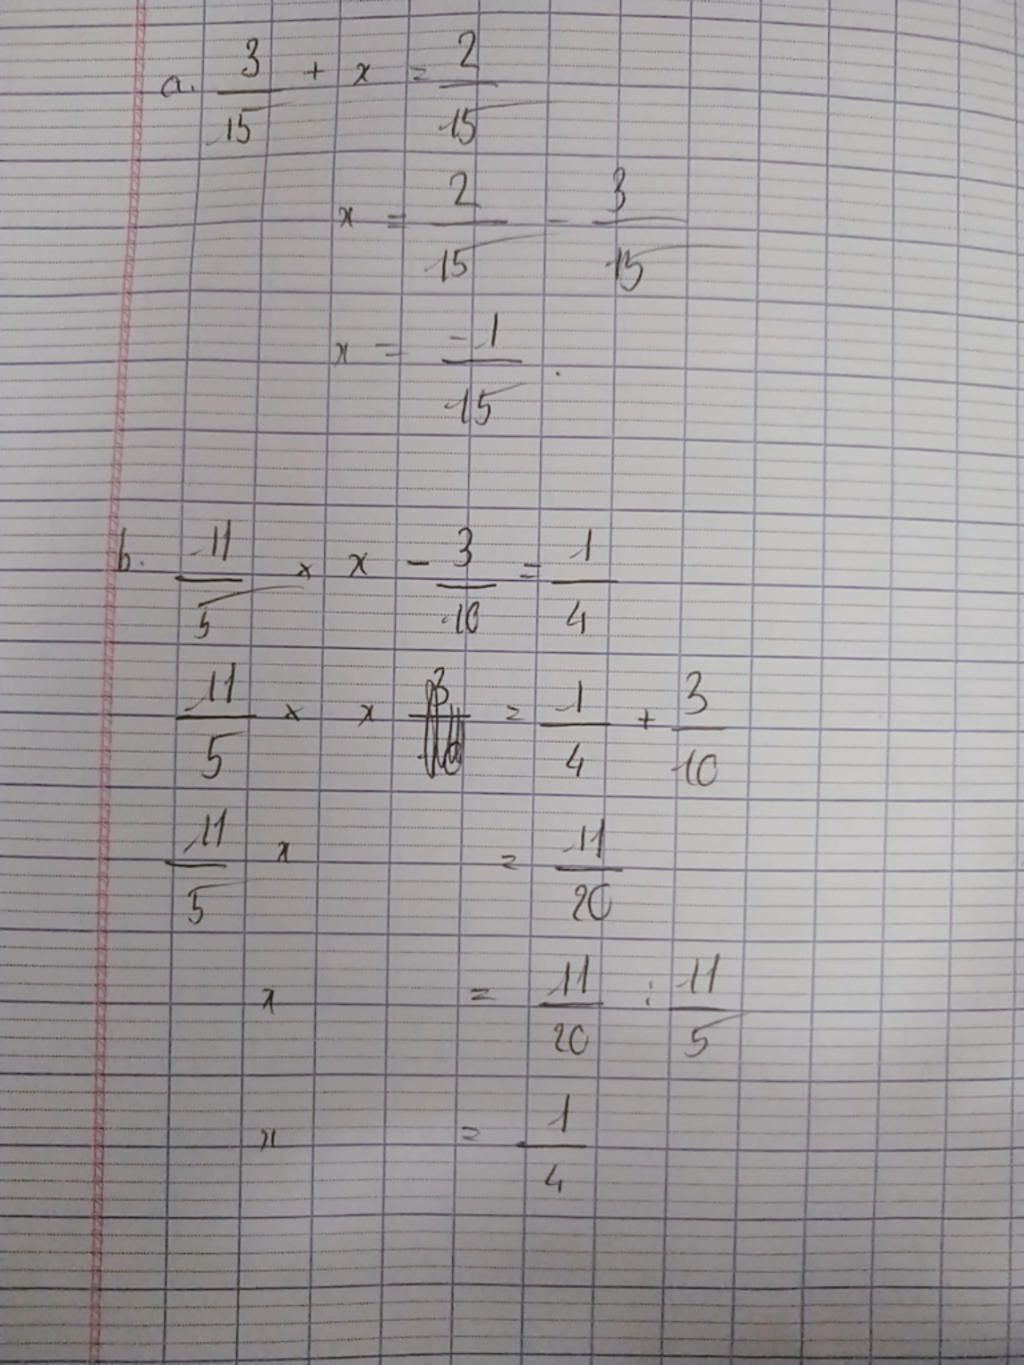 a. 3/15 + x = 2/15
x = 2/15 - 3/15
x = -1/15 .
b. 11/5 × x - 3/10 = 1/4
11/5 × x = 1/4 + 3/10
11/5 x = 11/20
x = 11/20 : 11/5
x = 1/4